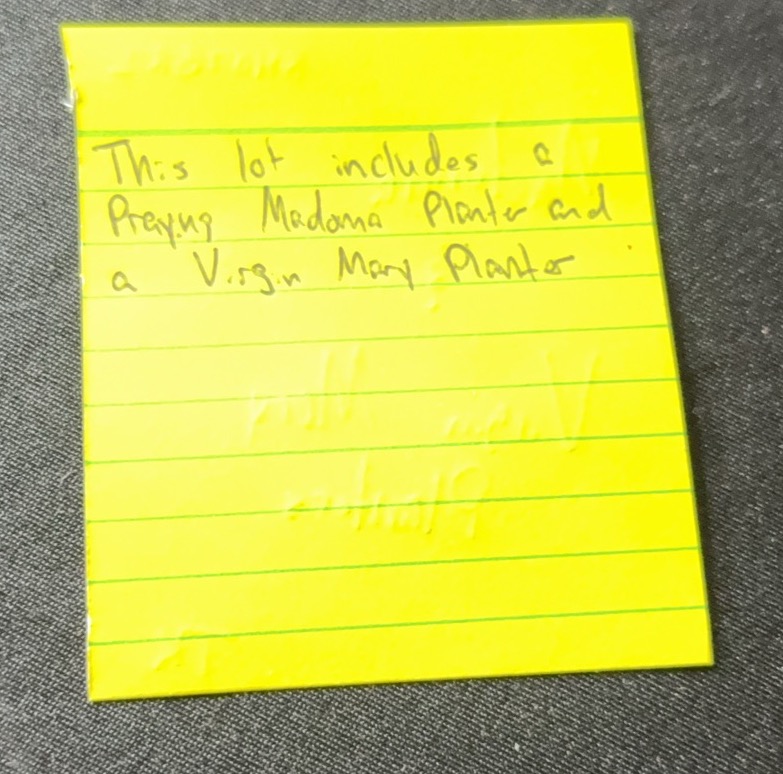 This lot includes a
Praying Madonna Planter and
a Virgin Mary Planter